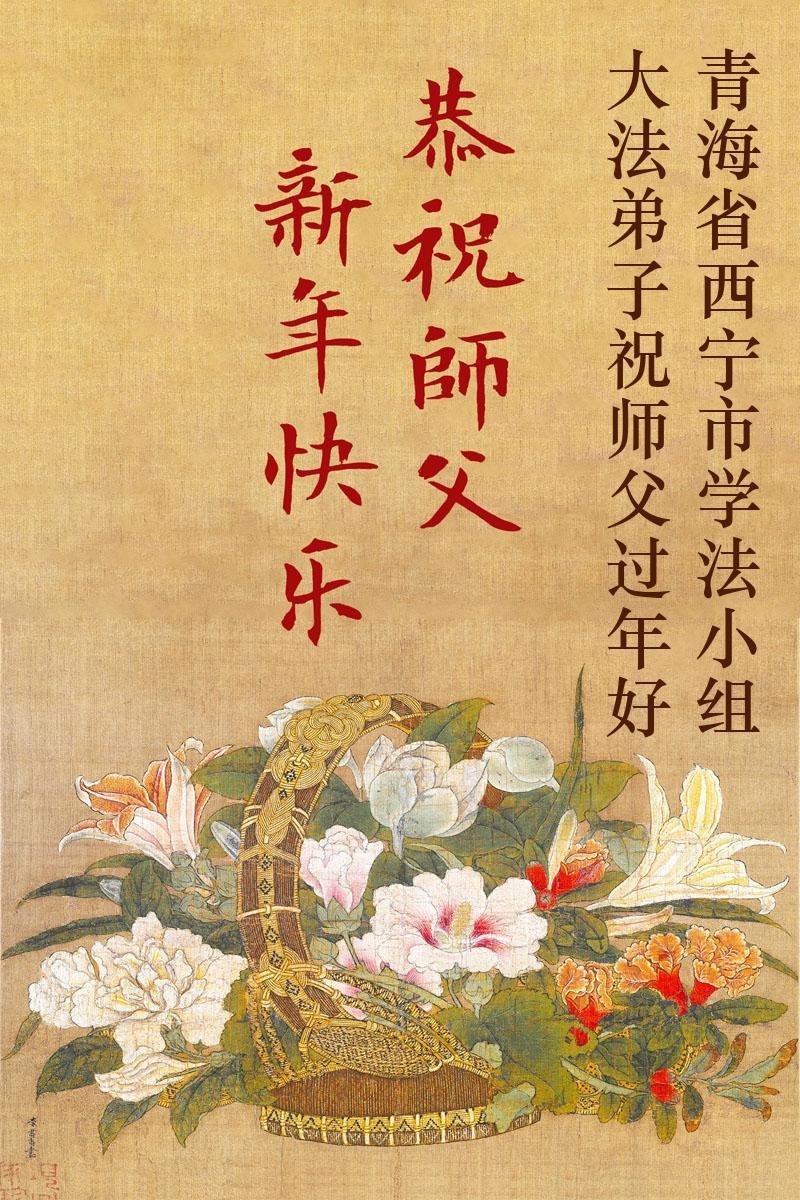 青海省西宁市学法小组
大法弟子祝师父过年好
恭祝師父
新年快乐